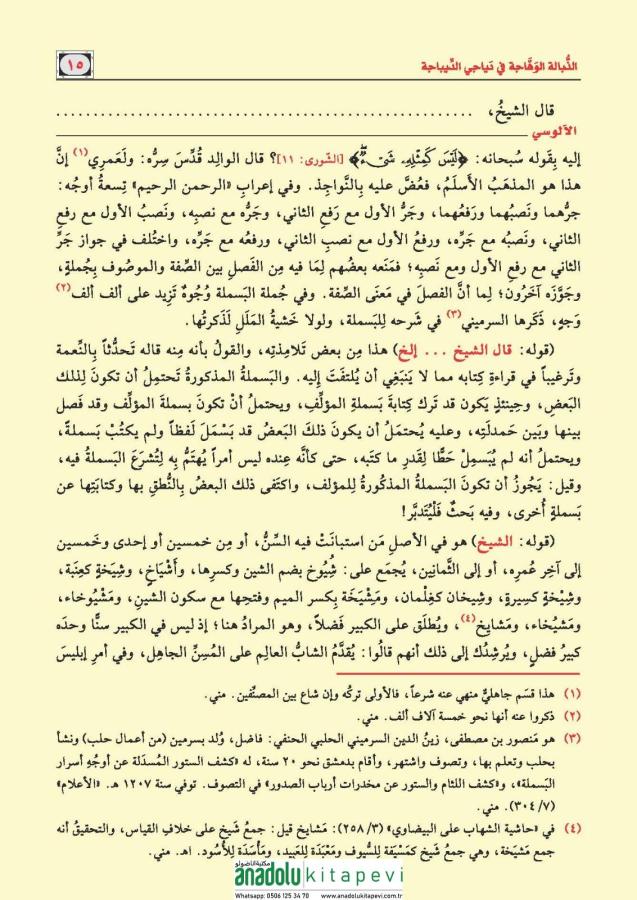 الذُّبالة الوَهَّاجة في دَياجي الدِّيباجة
١٥
قال الشيخُ، ............................................................
الآلوسي
إليه بِقَوله سُبحانه: ﴿لَيْسَ كَمِثْلِهِ شَيْءٌ﴾ [الشّورى: ١١]؟ قال الوالِد قُدِّسَ سِرُّه: ولَعَمرِي(١) إنَّ
هذا هو المذهَبُ الأَسلَمُ، فعُضَّ عليه بِالنَّواجِذ. وفي إعرابِ «الرحمن الرحيم» تِسعةُ أوجُه:
جرُّهما ونَصبُهما ورَفعُهما، وجَرُّ الأول مع رَفعِ الثاني، وجَرُّه مع نصبِه، ونَصبُ الأول مع رفعِ
الثاني، ونَصبُه مع جَرِّه، ورفعُ الأول مع نصبِ الثاني، ورفعُه مع جَرِّه، واختُلف في جواز جَرِّ
الثاني مع رفعِ الأول ومع نَصبِه؛ فمَنَعه بعضُهم لِمَا فيه مِن الفَصلِ بين الصِّفة والموصُوف بِجُملةٍ،
وجَوَّزَه آخَرُون؛ لِما أنَّ الفصلَ في مَعنَى الصِّفة. وفي جُملة البَسملة وُجُوهٌ تَزِيد على ألف ألف(٢)
وَجهٍ، ذَكَرها السرميني(٣) في شَرحه لِلبَسملة، ولولا خَشيةُ المَلَلِ لَذَكرتُها.
(قوله: قال الشيخ ... إلخ) هذا مِن بعض تَلامِذتِه، والقولُ بأنه مِنه قاله تَحدُّثاً بِالنِّعمة
وتَرغيباً في قراءةِ كِتابه مما لا يَنبَغِي أن يُلتفَتَ إليه. والبَسملةُ المذكورةُ تَحتمِلُ أن تكونَ لِذلك
البَعضِ، وحِينئذٍ يَكون قد تَرك كِتابةَ بَسملةِ المؤلِّفِ، ويحتمِلُ أنْ تكونَ بسملةَ المؤلِّف وقد فَصل
بينها وبَين حَمدلَتِه، وعليه يُحتمَلُ أن يكونَ ذلكَ البَعضُ قد بَسْمَلَ لَفظاً ولم يكتُبْ بَسملةً،
ويحتملُ أنه لم يُبَسمِلْ حَطًّا لِقَدرِ ما كتَبه، حتى كأنَّه عِنده ليس أمراً يُهتَمُّ بِه لِتُشرَعَ البَسملةُ فيه،
وقيل: يَجُوزُ أن تكونَ البَسملةُ المذكُورةُ لِلمؤلف، واكتَفى ذلك البعضُ بِالنُّطقِ بها وكِتابتِها عن
بَسملةٍ أُخرى، وفيه بَحثٌ فَلْيُتدبَّر!
(قوله: الشيخ) هو في الأصلِ مَن استبانَتْ فيه السِّنُّ، أو مِن خمسين أو إحدى وخَمسين
إلى آخِر عُمرِه، أو إلى الثَّمانِين، يُجمَع على: شُِيُوخ بضم الشين وكسرِها، وأَشْيَاخٍ، وشِيَخةٍ كعِنَبة،
وشِيْخةٍ كسِيرةٍ، وشِيخان كغِلْمان، ومَشْيَخَة بِكسر الميم وفتحِها مع سكون الشينِ، ومَشْيُوخاء،
ومَشيُخاء، ومَشايِخ(٤)، ويُطلَق على الكبير فَضلاً، وهو المرادُ هنا؛ إذ ليس في الكبير سنًّا وحدَه
كبيرُ فضلٍ، ويُرشِدُك إلى ذلك أنهم قالُوا: يُقدَّمُ الشابُّ العالِم على المُسِنِّ الجاهِلِ، وفي أمرِ إبليسَ
(١) هذا قسَم جاهليٌّ منهي عنه شرعاً، فالأولى تركُه وإن شاع بين المصنِّفين. مني.
(٢) ذكروا عنه أنها نحو خمسة آلاف ألف. مني.
(٣) هو مَنصور بن مصطفى، زينُ الدين السرميني الحلبي الحنفي: فاضل، وُلد بسرمين (من أعمال حلب) ونشأ
بحلب وتعلم بها، وتصوف واشتهر، وأقام بدمشق نحو ٢٠ سنة، له «كشف الستور المُسدَلة عن أوجُهِ أسرار
البَسملة»، و«كشف اللثام والستور عن مخدرات أرباب الصدور» في التصوف. توفي سنة ١٢٠٧ هـ. «الأعلام»
(٧/ ٣٠٤). مني.
(٤) في «حاشية الشهاب على البيضاوي» (٣/ ٢٥٨): مَشايخ قيل: جمعُ شَيخ على خلافِ القياس، والتحقيقُ أنه
جمع مَشيَخة، وهي جمعُ شَيخ كمَسْيَفة لِلسُّيوف ومَعْبَدَة لِلعبِيد، ومَأسَدة لِلأُسود. اهـ. مني.
مكتبة الاناضولو
anadolu kitapevi
Whatsapp: 0506 125 34 70 www.anadolukitapevi.com.tr